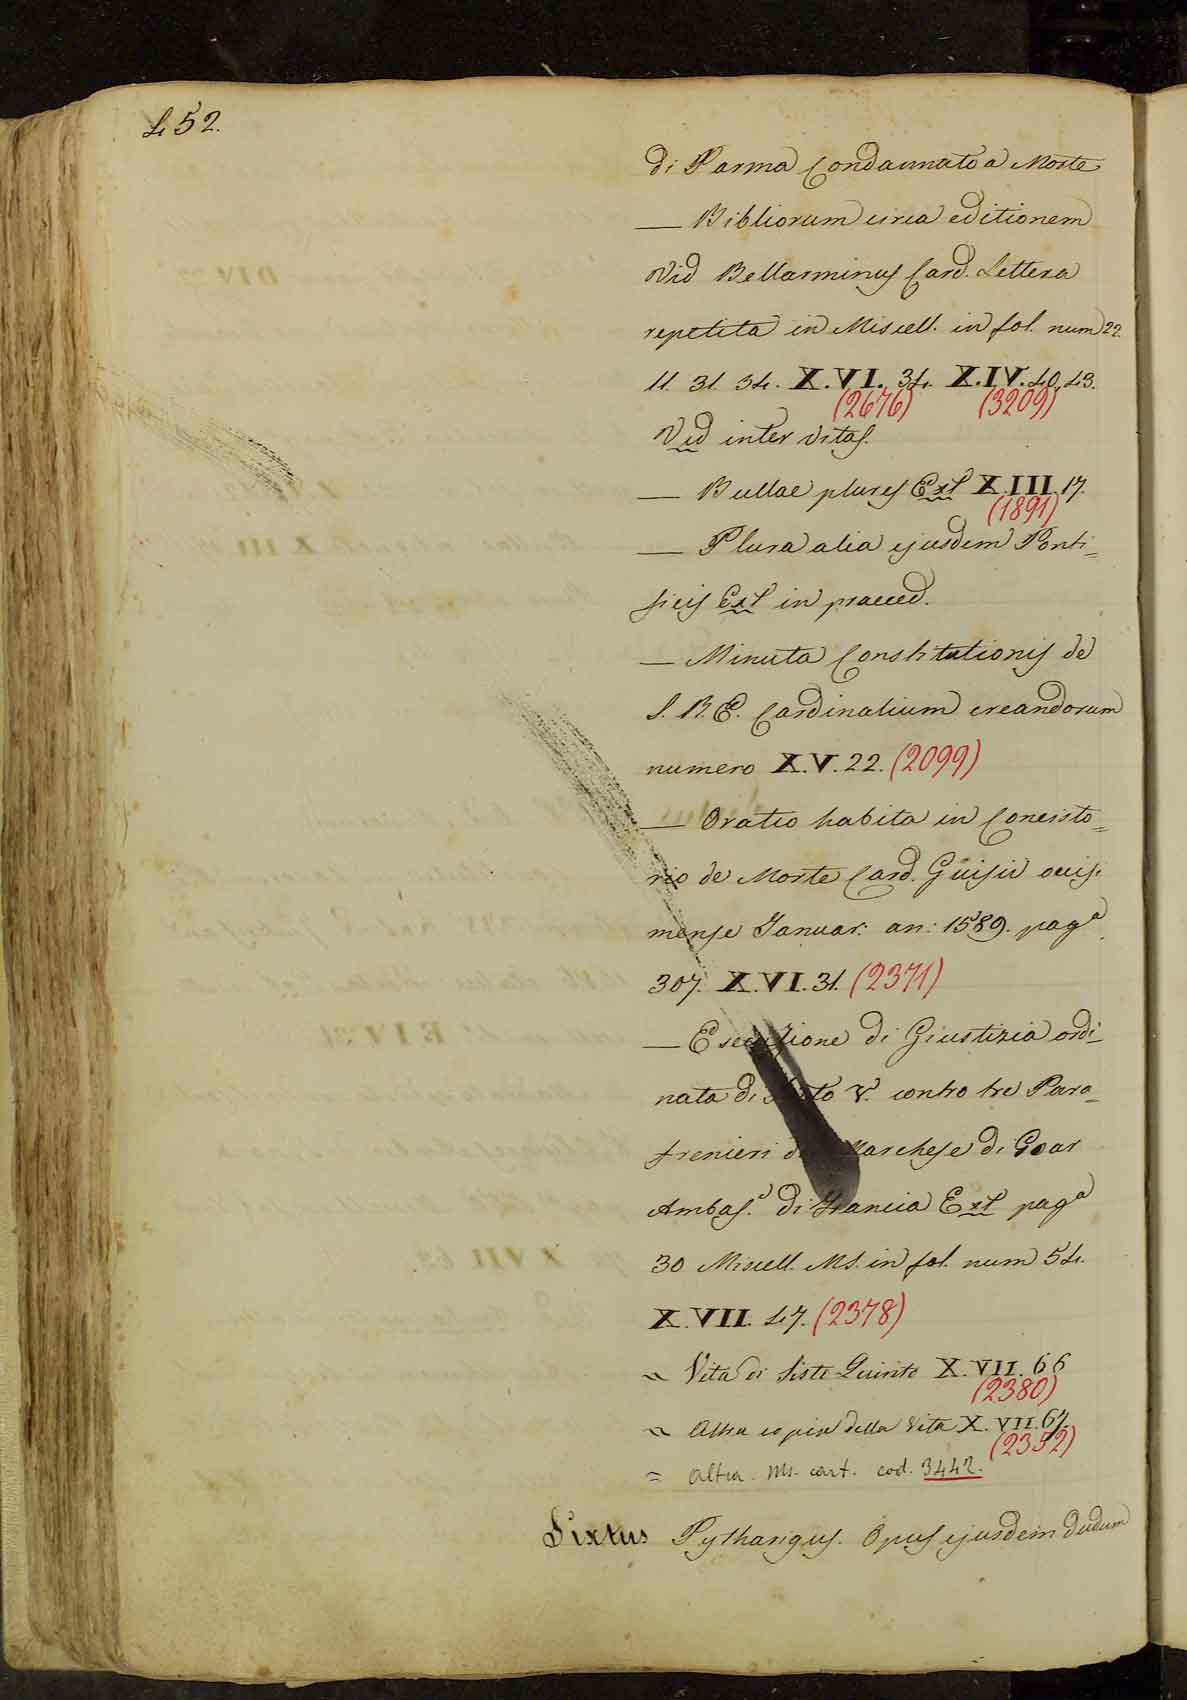 452.
di Parma Condannato a Morte
— Bibliorum circa editionem
Vid Bellarminus Card. Lettera
repetita in Miscell. in fol. num 22.
11. 31. 34. X.VI. 34. X.IV. 40. 43.
(2676) (3209)
Vid inter vitas.
— Bullae plures Ext X.III. 17.
(1891)
— Plura alia ejusdem Ponti=
ficis Ext in praeced.
— Minuta Constitutionis de
S. R. E. Cardinalium creandorum
numero X.V. 22. (2099)
— Oratio habita in Concisto=
rio de Morte Card. Guisii
mense Januar: an: 1589. pagª
307. X.VI. 31. (2371)
— Esecuzione di Giustizia ordi=
nata di Sisto V. contro tre Para=
frenieri Marchese di
Ambas.e di Francia Ext pagª
30 Miscell. MS. in fol. num 54.
X.VII. 47. (2378)
= Vita di Sisto Quinto X.VII. 66
(2380)
= Altra copia della Vita X.VII. 67.
(2352)
= altra. Ms. cart. cod. 3442.
Sixtus Opus ejusdem dudum